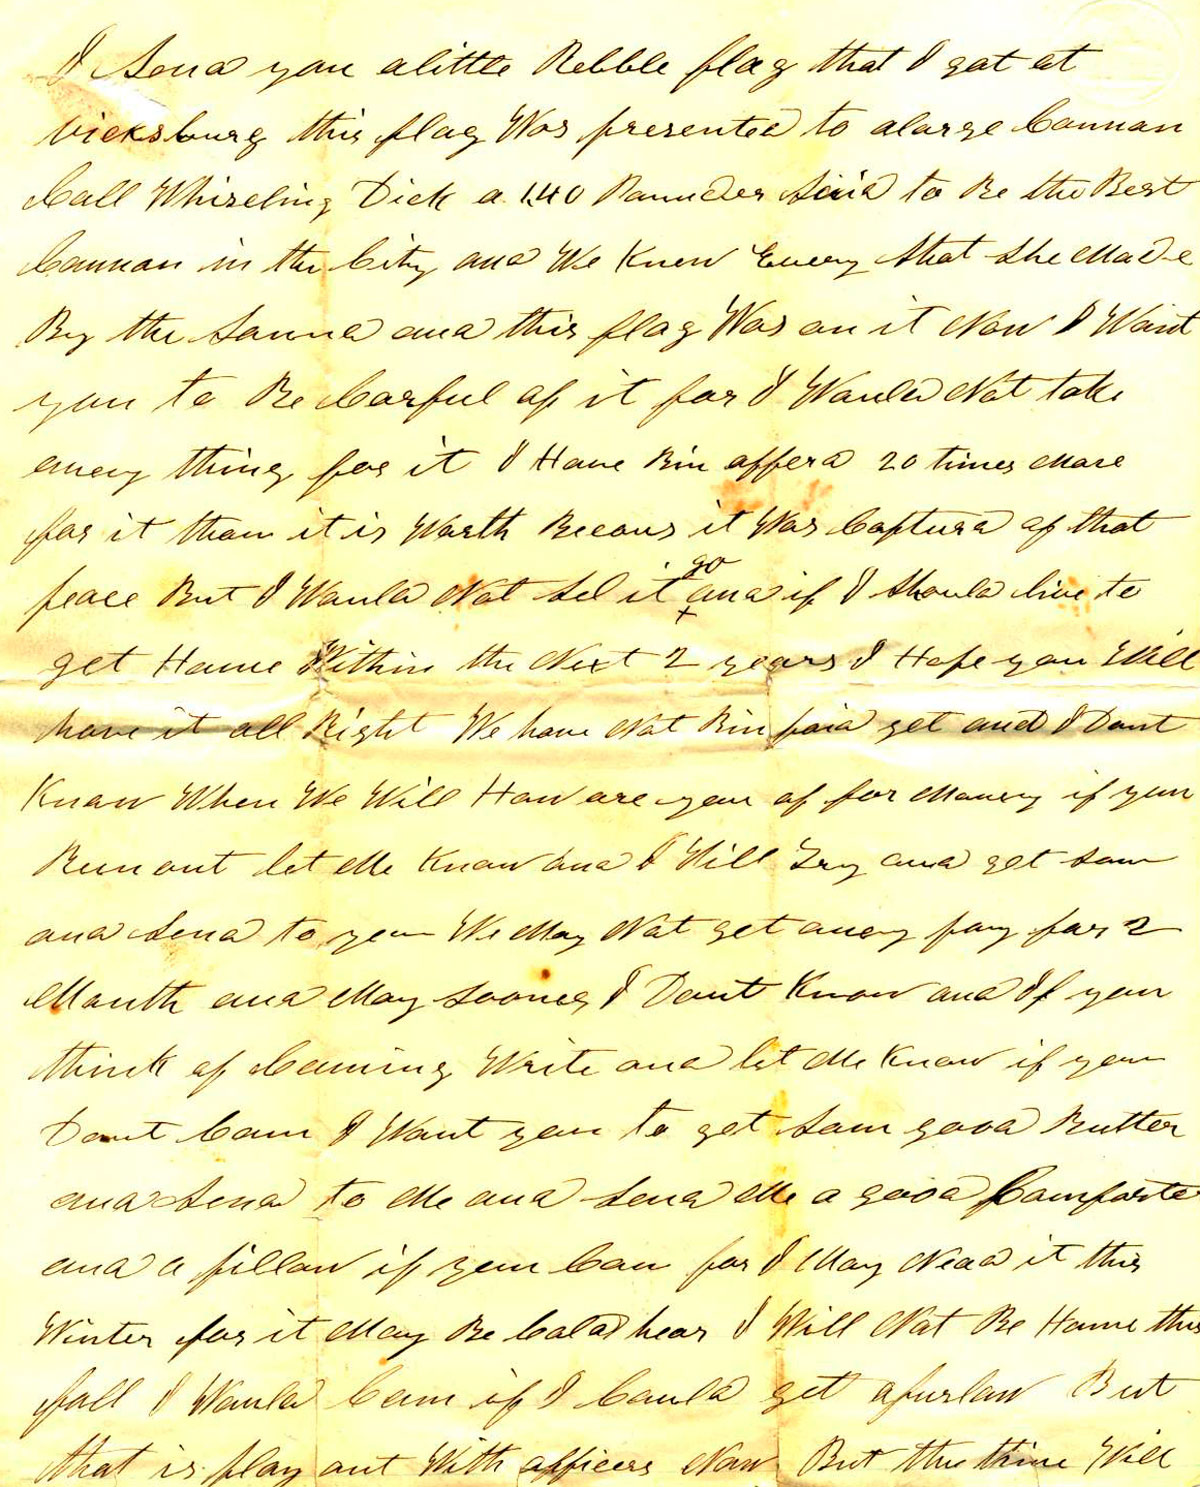 I Send you alittle Rebble flag that I got at
vicksburg this flag Was presented to alarge Cannan
Call Whiseling Dick a 140 Pounder Said to Be the Best
Cannan in the City and We Knew Every Shot She Made
By the Sound and this flag Was on it Now I Want
you to Be Carful of it for I Would Not take
eneny thing for it I Have Bin afferd 20 times More
for it than it is Worth Becaus it Was Capturd of that
peace But I Would Not Sel it go and if I Should live to
get Home Within the Next 2 years I Hope you Will
have it all Right We have Not Bin paid yet and I Dont
Know When We Will How are you of for Money if you
Run out let Me Know and I Will Try and get Som
and Send to you We May Not get aney pay for 2
Month and May Sooner I Dont Know and If you
think of Coming Write and let Me Know if you
Dont Com I Want you to get Som good Butter
and Send to Me and Send Me a good Comforte
and a pillow if you Can for I May Nead it this
Winter for it May Be Cold hear I Will Not Be Home this
fall I Would Com if I Could get afurlow But
that is play out With officers Now But the time Will